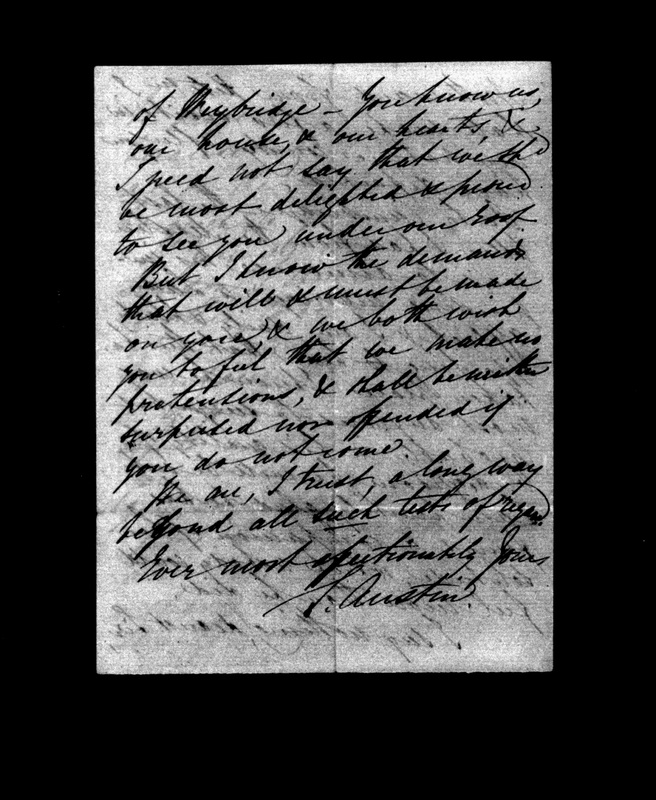 of Weybridge – You know us,
our house, & our hearts, &
I need not say that we shd
be most delighted & proud
to see you under our roof
But I know the demands
that will & must be made
on you, & we both wish
you to feel that we make no
pretensions, & shall be neither
surprised nor offended if
you do not come.
We are, I trust, a long way
beyond all such tests of regard.
Ever most affectionately Yours
S. Austin